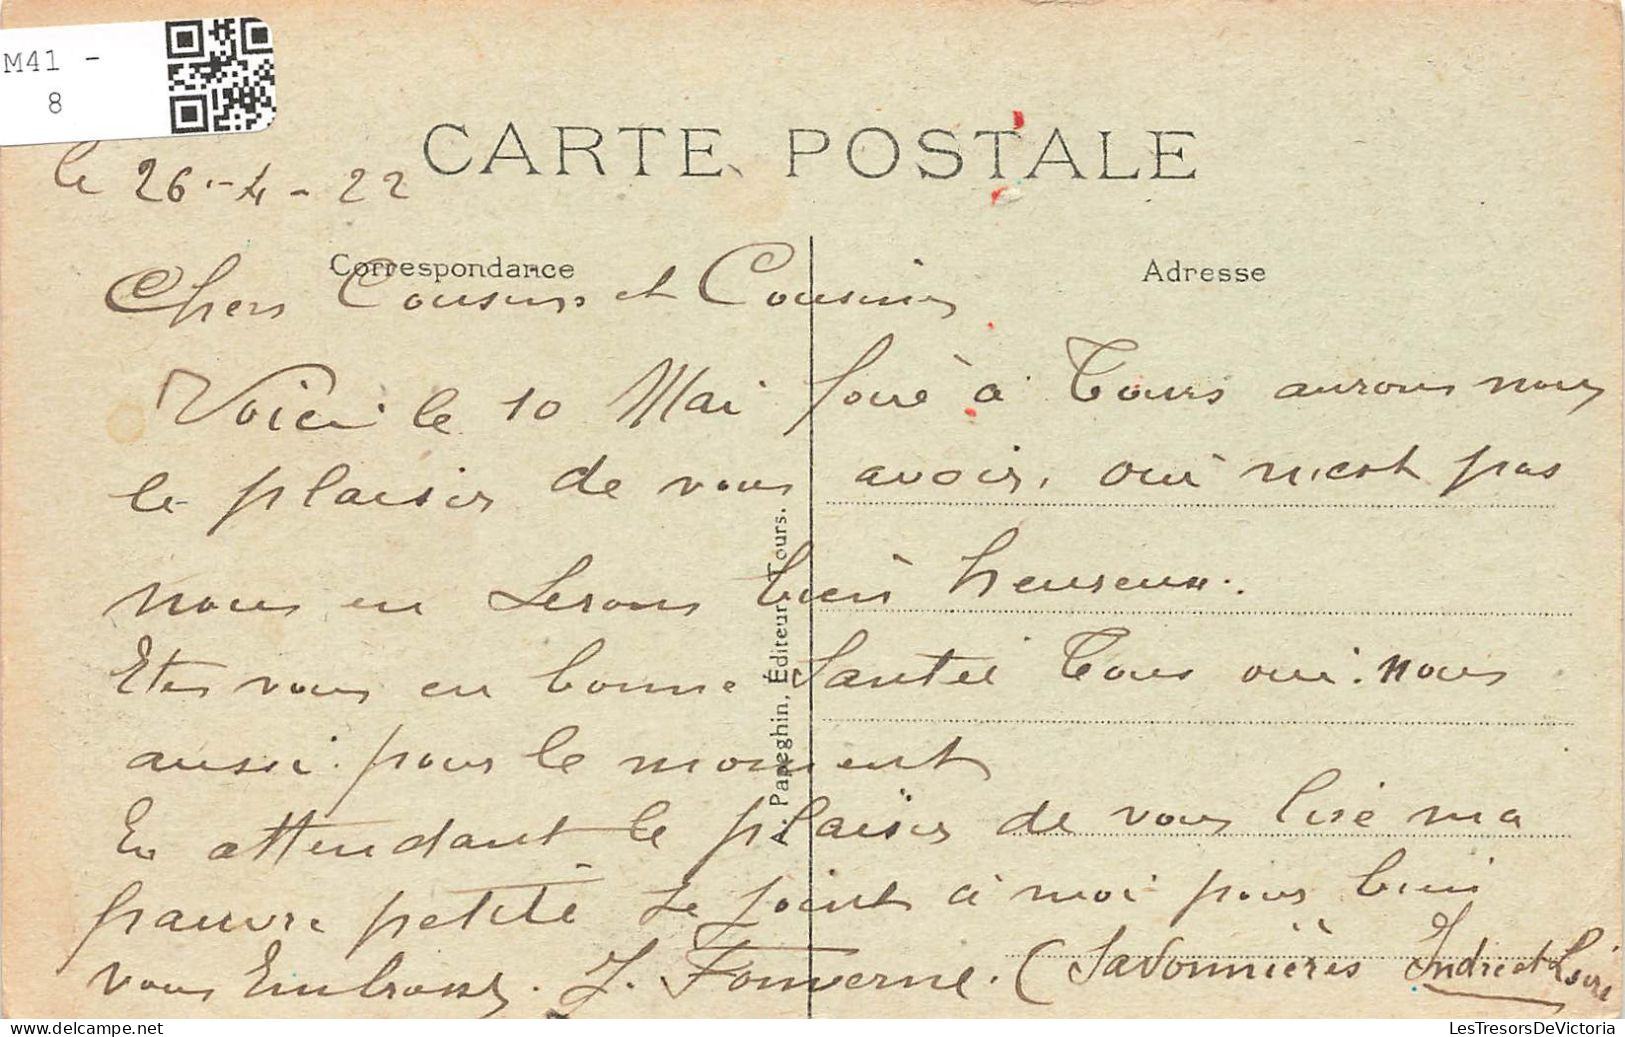 M41 -
8
CARTE POSTALE
le 26-4-22
Correspondance
Adresse
Chers Cousins et Cousines
Voici le 10 Mai foire à Tours aurons nous
le plaisir de vous avoir, oui n'est pas
nous en serons bien heureux.
Etes vous en bonne Santée Tous oui. nous
aussi pour le moment
En attendant le plaisir de vous lire ma
pauvre petite se joint à moi pour bien
vous Embrasser. J. (Savonnières Indre et Loire
A. Papeghin, Éditeur, Tours.
LesTresorsDeVictoria